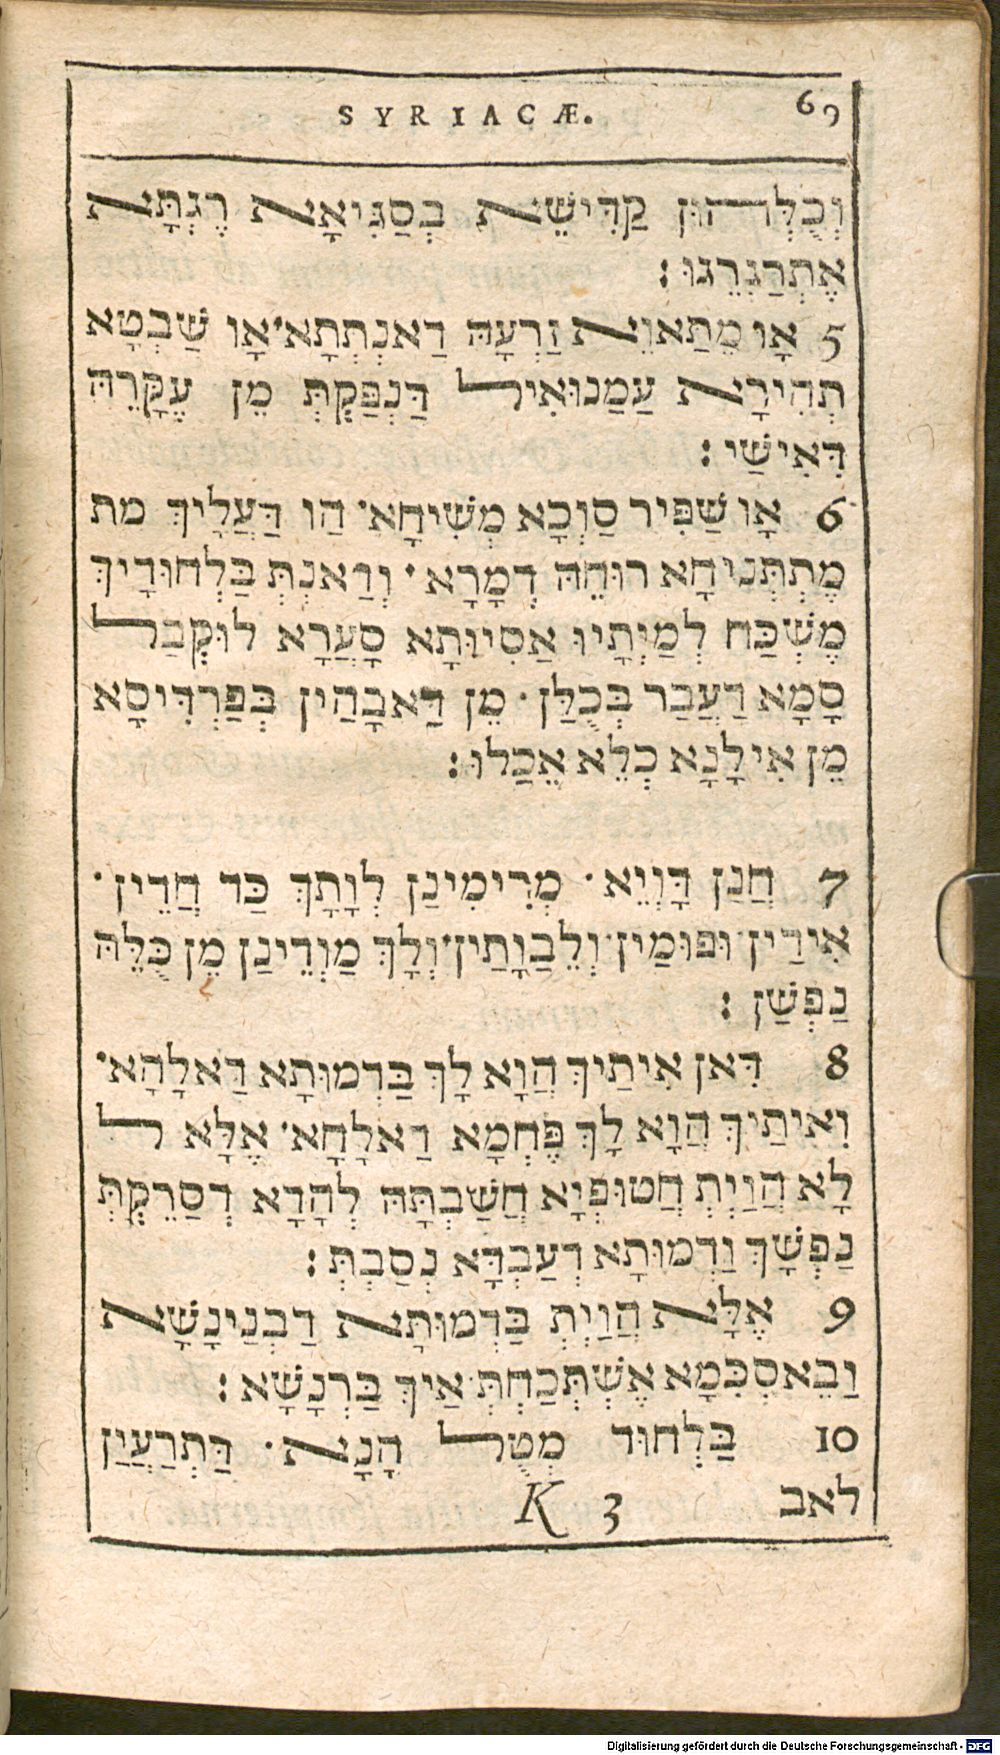 SYRIACÆ. 69
וְכֻלְּהוּן קַדִּישֵׁא בְּסַגִּיאָא רֶגְתָּא
אֶתְרַגְרֵגוּ :
5 אָו מֵתַּאוֵא זַרְעָהּ דַאנְתְתָא אָו שַׁבְטָא
תְּהִירָא עַמַנוּאִיל דַּנְפַּקְתְּ מֵן עֶקָּרֵהּ
דְּאִישַׁי :
6 אָו שַׁפִּיר סַוְכָא מְשִׁיחָא הַו דַּעֲלָיךְ מת
מֶתְתְּנִיחָא רוּחֵהּ דְמָרָא וְדַאנְתְּ בַּלְחוּדָיךְ
מֶשְׁכַּח לְמַיְתָיוּ אַסִיוּתָא סָעֲרָא לוּקְבַל
סָמָא דַעֲבַר בְּכֻלַּן מֵן דַּאבָהַין בְּפַרְדִּיסָא
מֵן אִילָנָא כְלֵא אֱכַלוּ :
7 חְנַן דָּוְיֵא מְרִימִינַן לְוָתָךְ כַּד חֲדֵין
אִידַין וּפוּמַין וְלֵבַוָתַין וְלָךְ מַוְדֵינַן מֵן כֻּלֵּהּ
נַפְשַׁן :
8 דְּאן אִיתַיךְ הֲוָא לָךְ בַּדְמוּתָא דַּאלָהָא
וְאִיתַיךְ הֲוָא לָךְ פֶּחְמָא דַּאלָחָא אֶלָּא ל
לָא הֲוַיְתְּ חֲטוּפְיָא חֲשַׁבְתָּהּ לְהָדָא דְסַרֵקְתְּ
נַפְשָׁךְ וַדְמוּתָא דְעַבְדָּא נְסַבְתְּ :
9 אֶלָּא הֲוַיְתְּ בַּדְמוּתָא דַּבְנַינָשָׁא
וַבֵאסְכִּמָא אֶשְׁתְּכַחְתְּ אַיךְ בַּרְנָשָׁא :
10 בַּלְחוּד מְטֻל הָנָא דַּתְרַעֲיַן
K 3 לאב
Digitalisierung gefördert durch die Deutsche Forschungsgemeinschaft - DFG